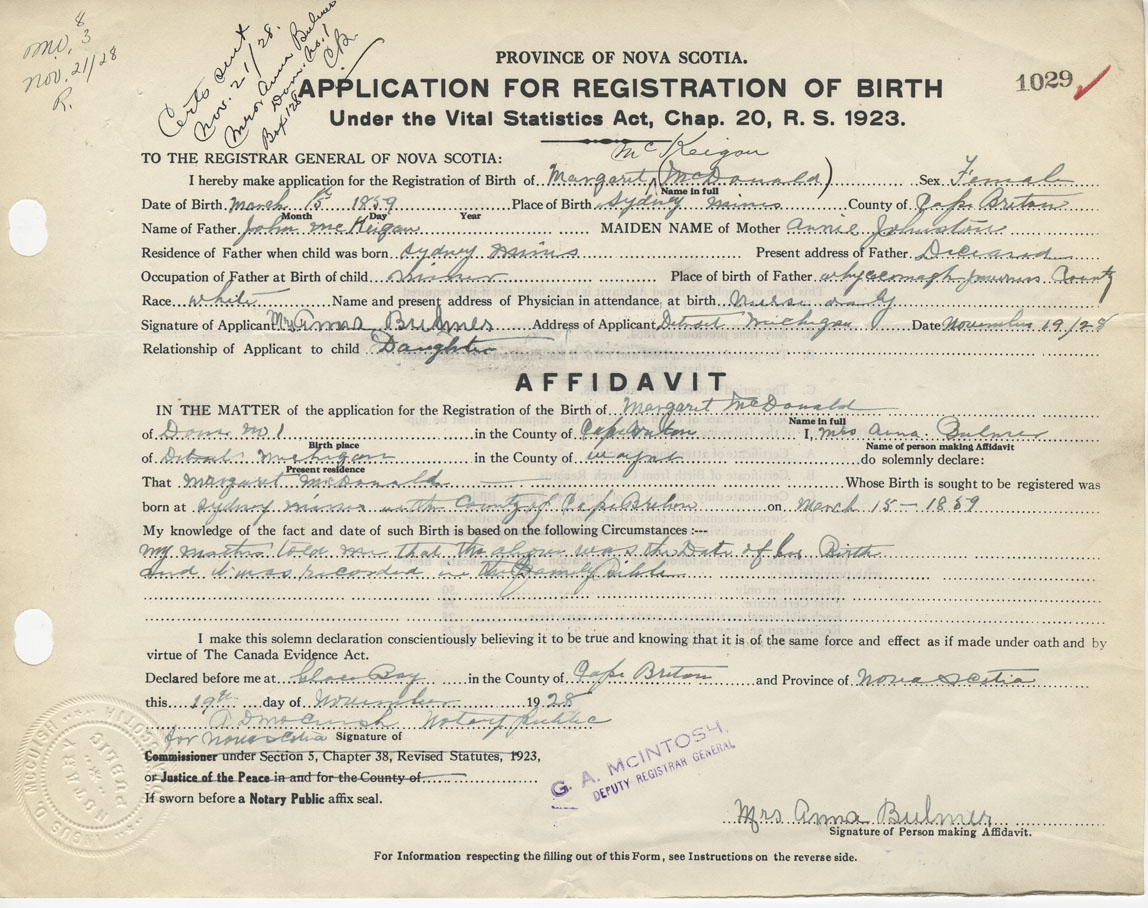 mo. 3 8
Nov. 21/28
R.
Certs sent
Nov. 21/28.
Mrs Anna Bulmer
Dom. No. 1
Box 128 C.B.
PROVINCE OF NOVA SCOTIA.
APPLICATION FOR REGISTRATION OF BIRTH
1029
Under the Vital Statistics Act, Chap. 20, R. S. 1923.
McKeigan
TO THE REGISTRAR GENERAL OF NOVA SCOTIA:
I hereby make application for the Registration of Birth of Margaret (McDonald) Sex Female
Name in full
Date of Birth March 15th 1859 Place of Birth Sydney Mines County of Cape Breton
Month Day Year
Name of Father John McKeigan MAIDEN NAME of Mother Annie Johnston
Residence of Father when child was born Sydney Mines Present address of Father Diceased
Occupation of Father at Birth of child Place of birth of Father Whycocomagh Inverness County
Race white Name and present address of Physician in attendance at birth Nurse only
Signature of Applicant Mrs Anna Bulmer Address of Applicant Detroit Michigan Date November 19/28
Relationship of Applicant to child Daughter
AFFIDAVIT
IN THE MATTER of the application for the Registration of the Birth of Margaret McDonald
Name in full
of Dom No 1 in the County of Cape Breton I, Mrs Anna Bulmer
Birth place Name of person making Affidavit
of Detroit Michigan in the County of Wayne do solemnly declare:
Present residence
That Margaret McDonald Whose Birth is sought to be registered was
born at Sydney Mines in the County of Cape Breton on March 15 - 1859
My knowledge of the fact and date of such Birth is based on the following Circumstances :---
My mother told me that the above was the Date of her Birth
and it was recorded in the Family Bible
I make this solemn declaration conscientiously believing it to be true and knowing that it is of the same force and effect as if made under oath and by
virtue of The Canada Evidence Act.
Declared before me at Glace Bay in the County of Cape Breton and Province of Nova Scotia
this 19th day of November 1928
Notary Public
for Nova Scotia Signature of
Commissioner under Section 5, Chapter 38, Revised Statutes, 1923,
or Justice of the Peace in and for the County of
If sworn before a Notary Public affix seal.
G. A. McINTOSH,
DEPUTY REGISTRAR GENERAL
Mrs Anna Bulmer
Signature of Person making Affidavit.
For Information respecting the filling out of this Form, see Instructions on the reverse side.